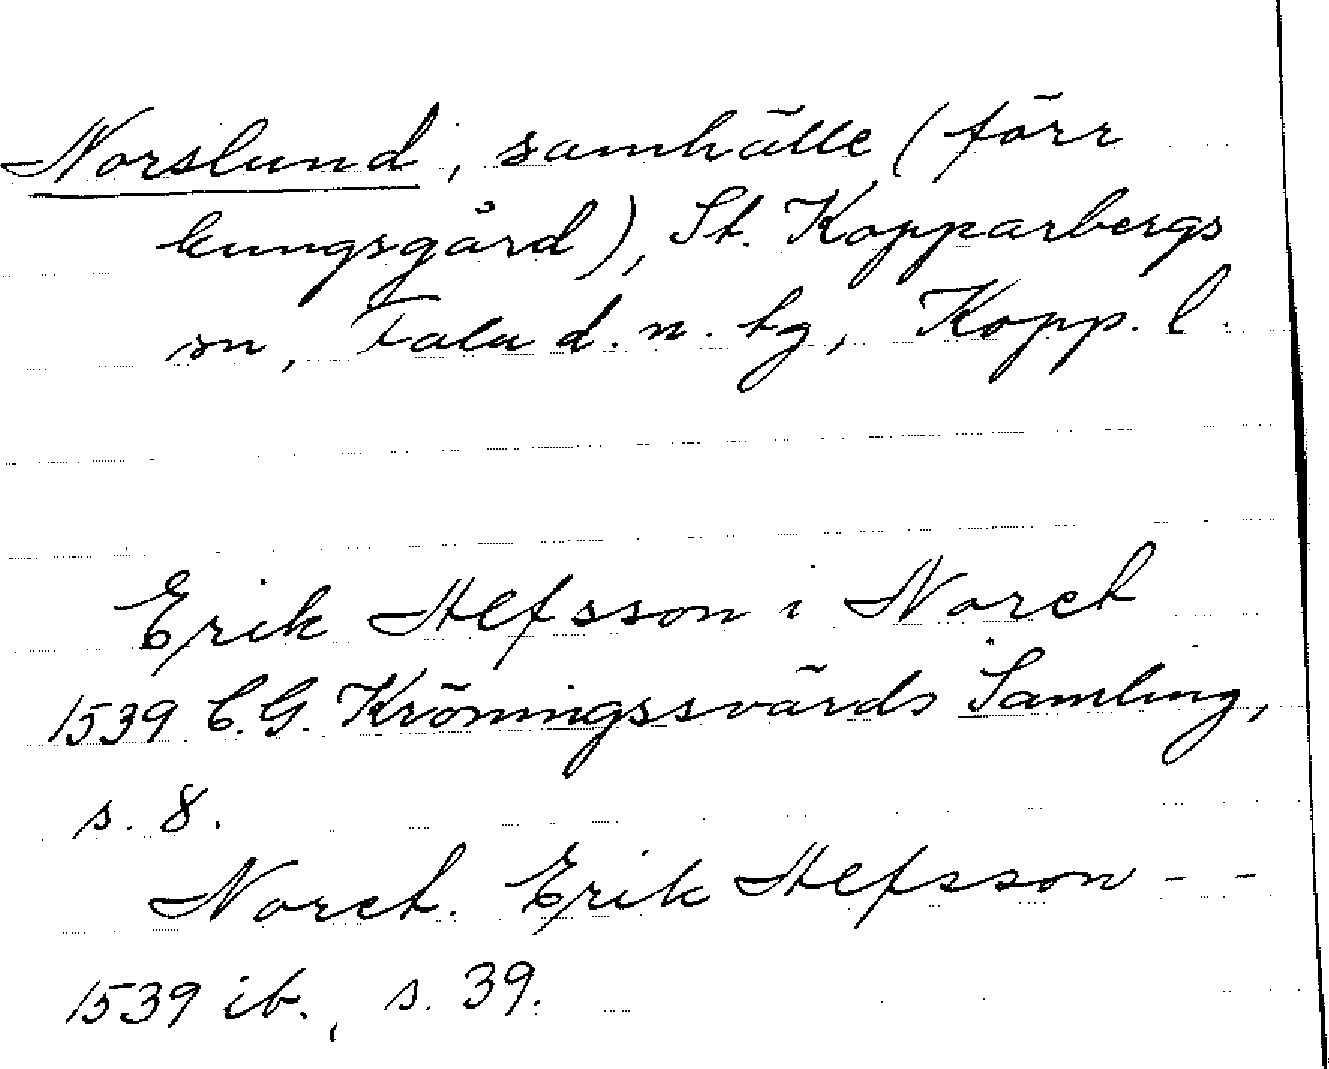 Norslund, samhälle (förr
kungsgård), St. Kopparbergs
sn, Falu d. n. tg, Kopp. l.
Erik Alfsson i Noret
1539 C.G. Kröningssvärds Samling,
s. 8.
Noret. Erik Alfsson - -
1539 ib., s. 39.